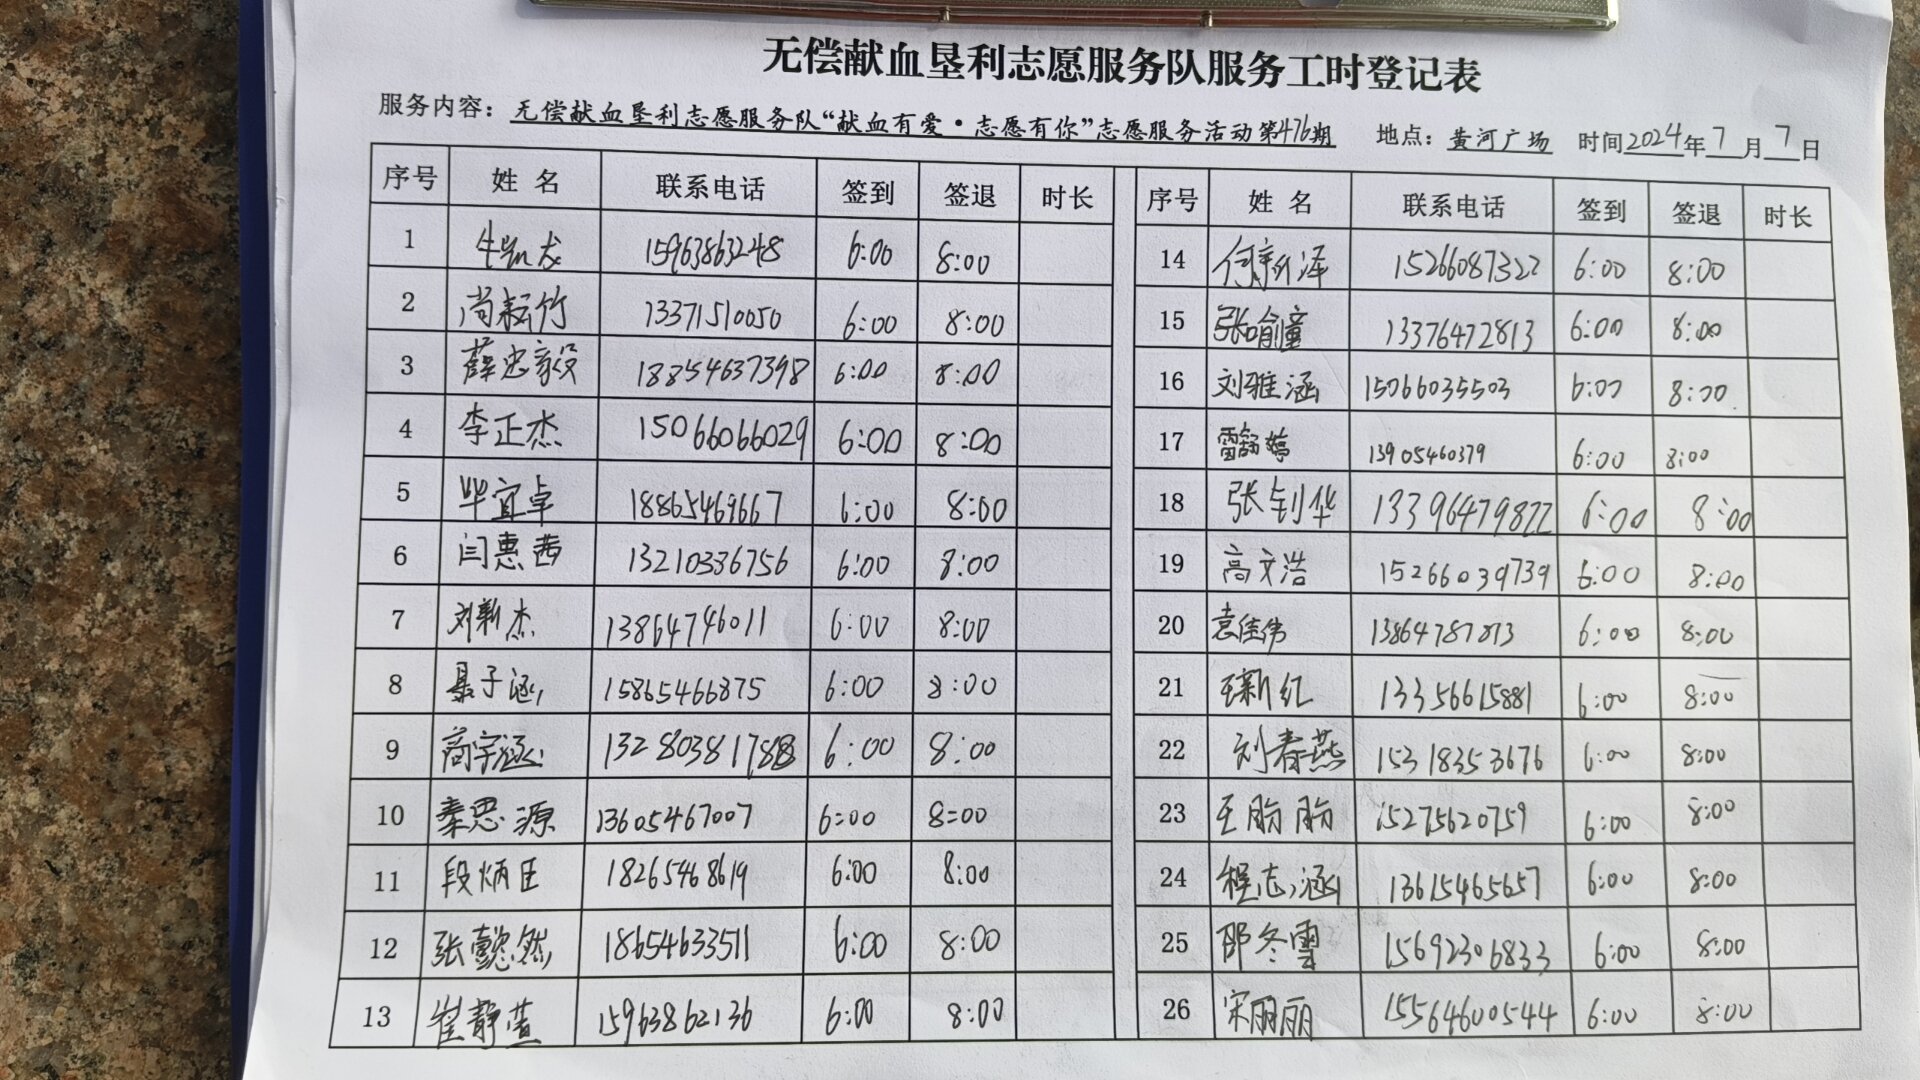 无偿献血垦利志愿服务队服务工时登记表
服务内容：无偿献血垦利志愿服务队“献血有爱·志愿有你”志愿服务活动第476期 地点：黄河广场 时间2024年7月7日
序号 姓名 联系电话 签到 签退 时长 序号 姓名 联系电话 签到 签退 时长
1 15963863248 6:00 8:00
2 尚耘竹 13371510050 6:00 8:00
3 薛忠毅 18854637398 6:00 8:00
4 李正杰 15066066029 6:00 8:00
5 毕宜卓 18865469667 6:00 8:00
6 闫惠茜 13210336756 6:00 8:00
7 刘新杰 13864746011 6:00 8:00
8 子涵 15865466875 6:00 8:00
9 商宇涵 6:00 8:00
10 秦思源 13605467007 6:00 8:00
11 段炳臣 18265468619 6:00 8:00
12 张懿然 18654633511 6:00 8:00
13 崔静 15963862136 6:00 8:00
14 何新泽 15266087322 6:00 8:00
15 张喻童 13376472813 6:00 8:00
16 刘雅涵 15066035503 6:00 8:00
17 雷舒婷 13905460379 6:00 8:00
18 张钊华 13396479822 6:00 8:00
19 高文浩 15266039739 6:00 8:00
20 袁佳伟 13864787813 6:00 8:00
21 王新红 13356615881 6:00 8:00
22 刘春燕 15318353676 6:00 8:00
23 王 15275620759 6:00 8:00
24 程志涵 13615465657 6:00 8:00
25 邵冬雪 15692306833 6:00 8:00
26 宋丽丽 15564600544 6:00 8:00